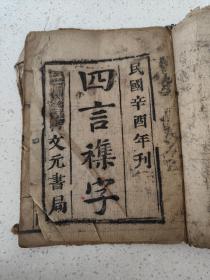 民國辛酉年刊
四言襍字
文元書局